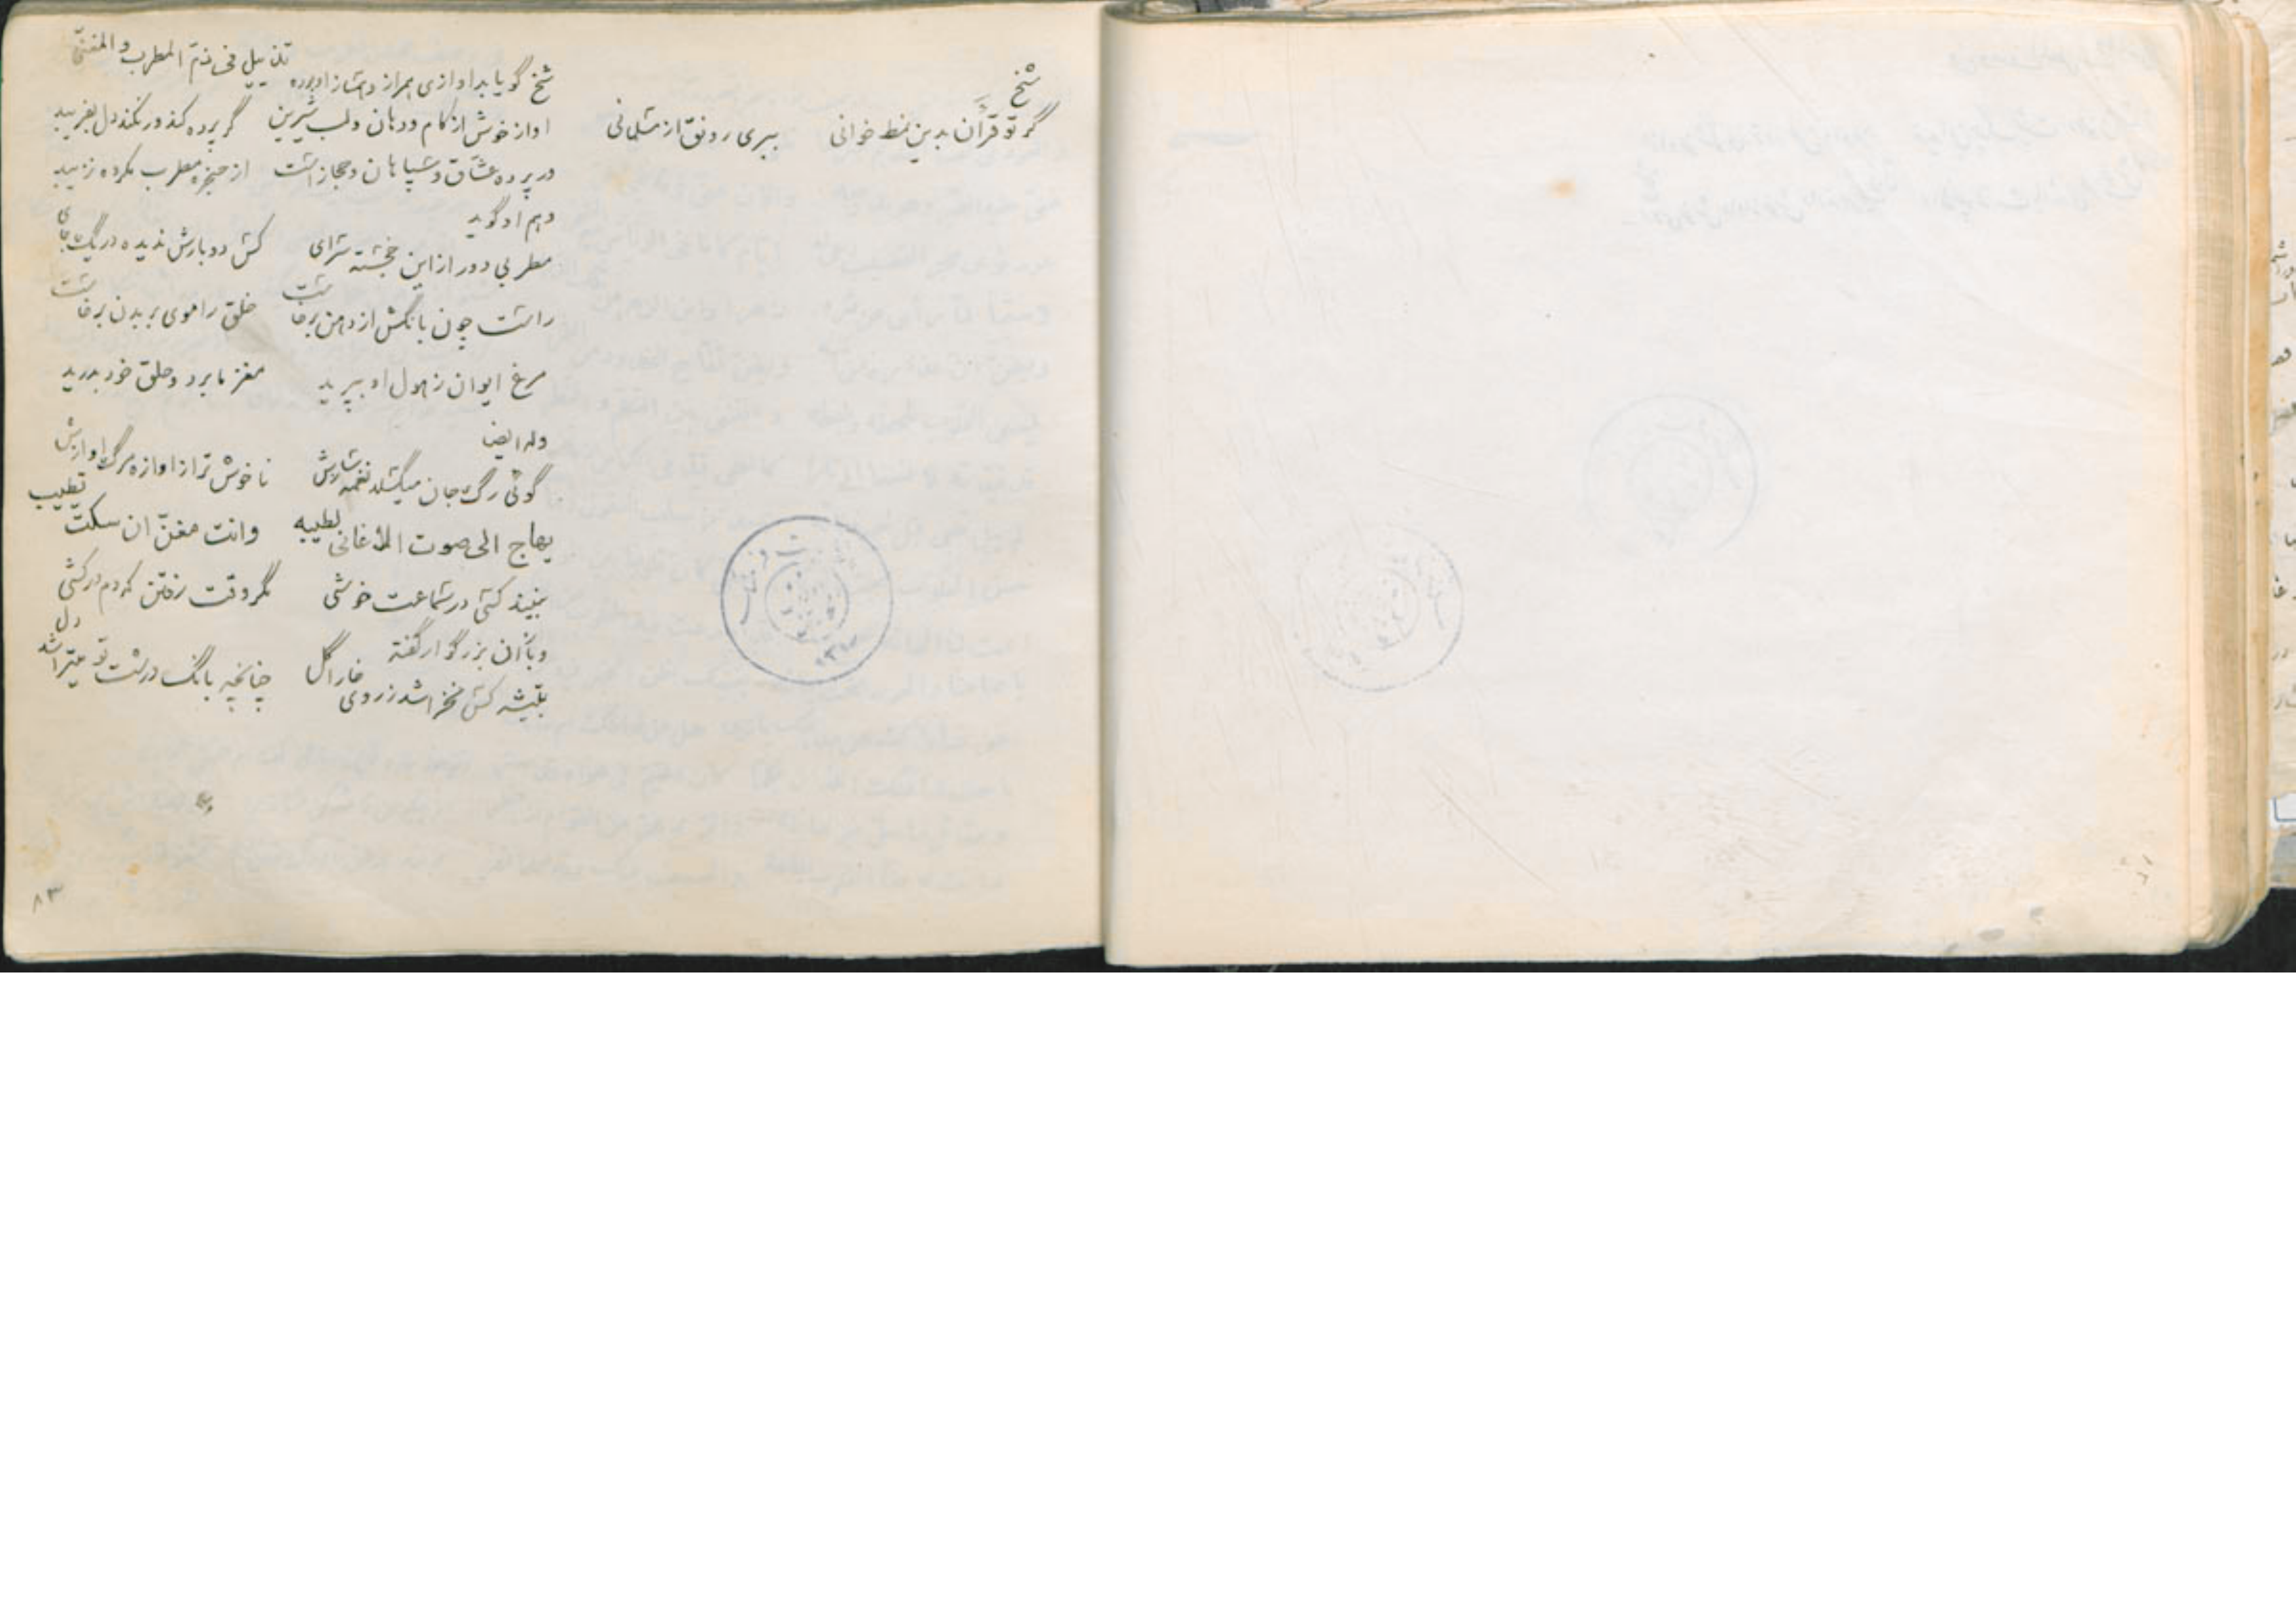 شخ
گر تو قرآن بدین نمط خوانی ببری رونق از مسلمانی
تذییل فی ذمّ المطرب و المغنّی
شخ گویا بد اوازی همراز و دمساز او بوده
اواز خوش از کام و دهان و لب شیرین گر پرده کند ور نکند دل بفریبد
در پرده عشّاق و سپاهان و حجاز است از حنجره مطرب مکرده نزیبد
و هم او گوید
مطربی دور از این خجسته سرای کس دو بارش ندیده در یک جای
راست چون بانکش از دهن برخاست خلق را موی بر بدن برخاست
مرغ ایوان ز هول او بپرید مغز ما برد و حلق خود بدرید
وله ایضا
گوئی رگ جان میگسلد نغمه سازش ناخوش تر از اوازه مرگ اوازش
یهاج الی صوت الاغانی لطیبه وانت مغنّ ان سکتّ تطیب
نبیند کسی در سماعت خوشی مگر وقت رفتن که دم در کشی
و بآن بزرگوار گفته
بتیشه کس نخراشد ز روی خارا گل چنانچه بانگ درشت تو میتراشد دل
۸۳